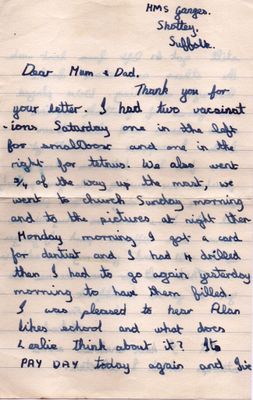 HMS Ganges.
Shotley.
Suffolk.
Dear Mum & Dad.
Thank you for
your letter. I had two vaccinat
-ions Saturday one in the left
for smallpox and one in the
right for tetnus. We also went
3/4 of the way up the mast, we
went to church Sunday morning
and to the pictures at night then
Monday morning I got a card
for dentist and I had 4 drilled
then I had to go again yesterday
morning to have them filled.
I was pleased to hear Alan
likes school and what does
Leslie think about it? Its
PAY DAY today again and I've